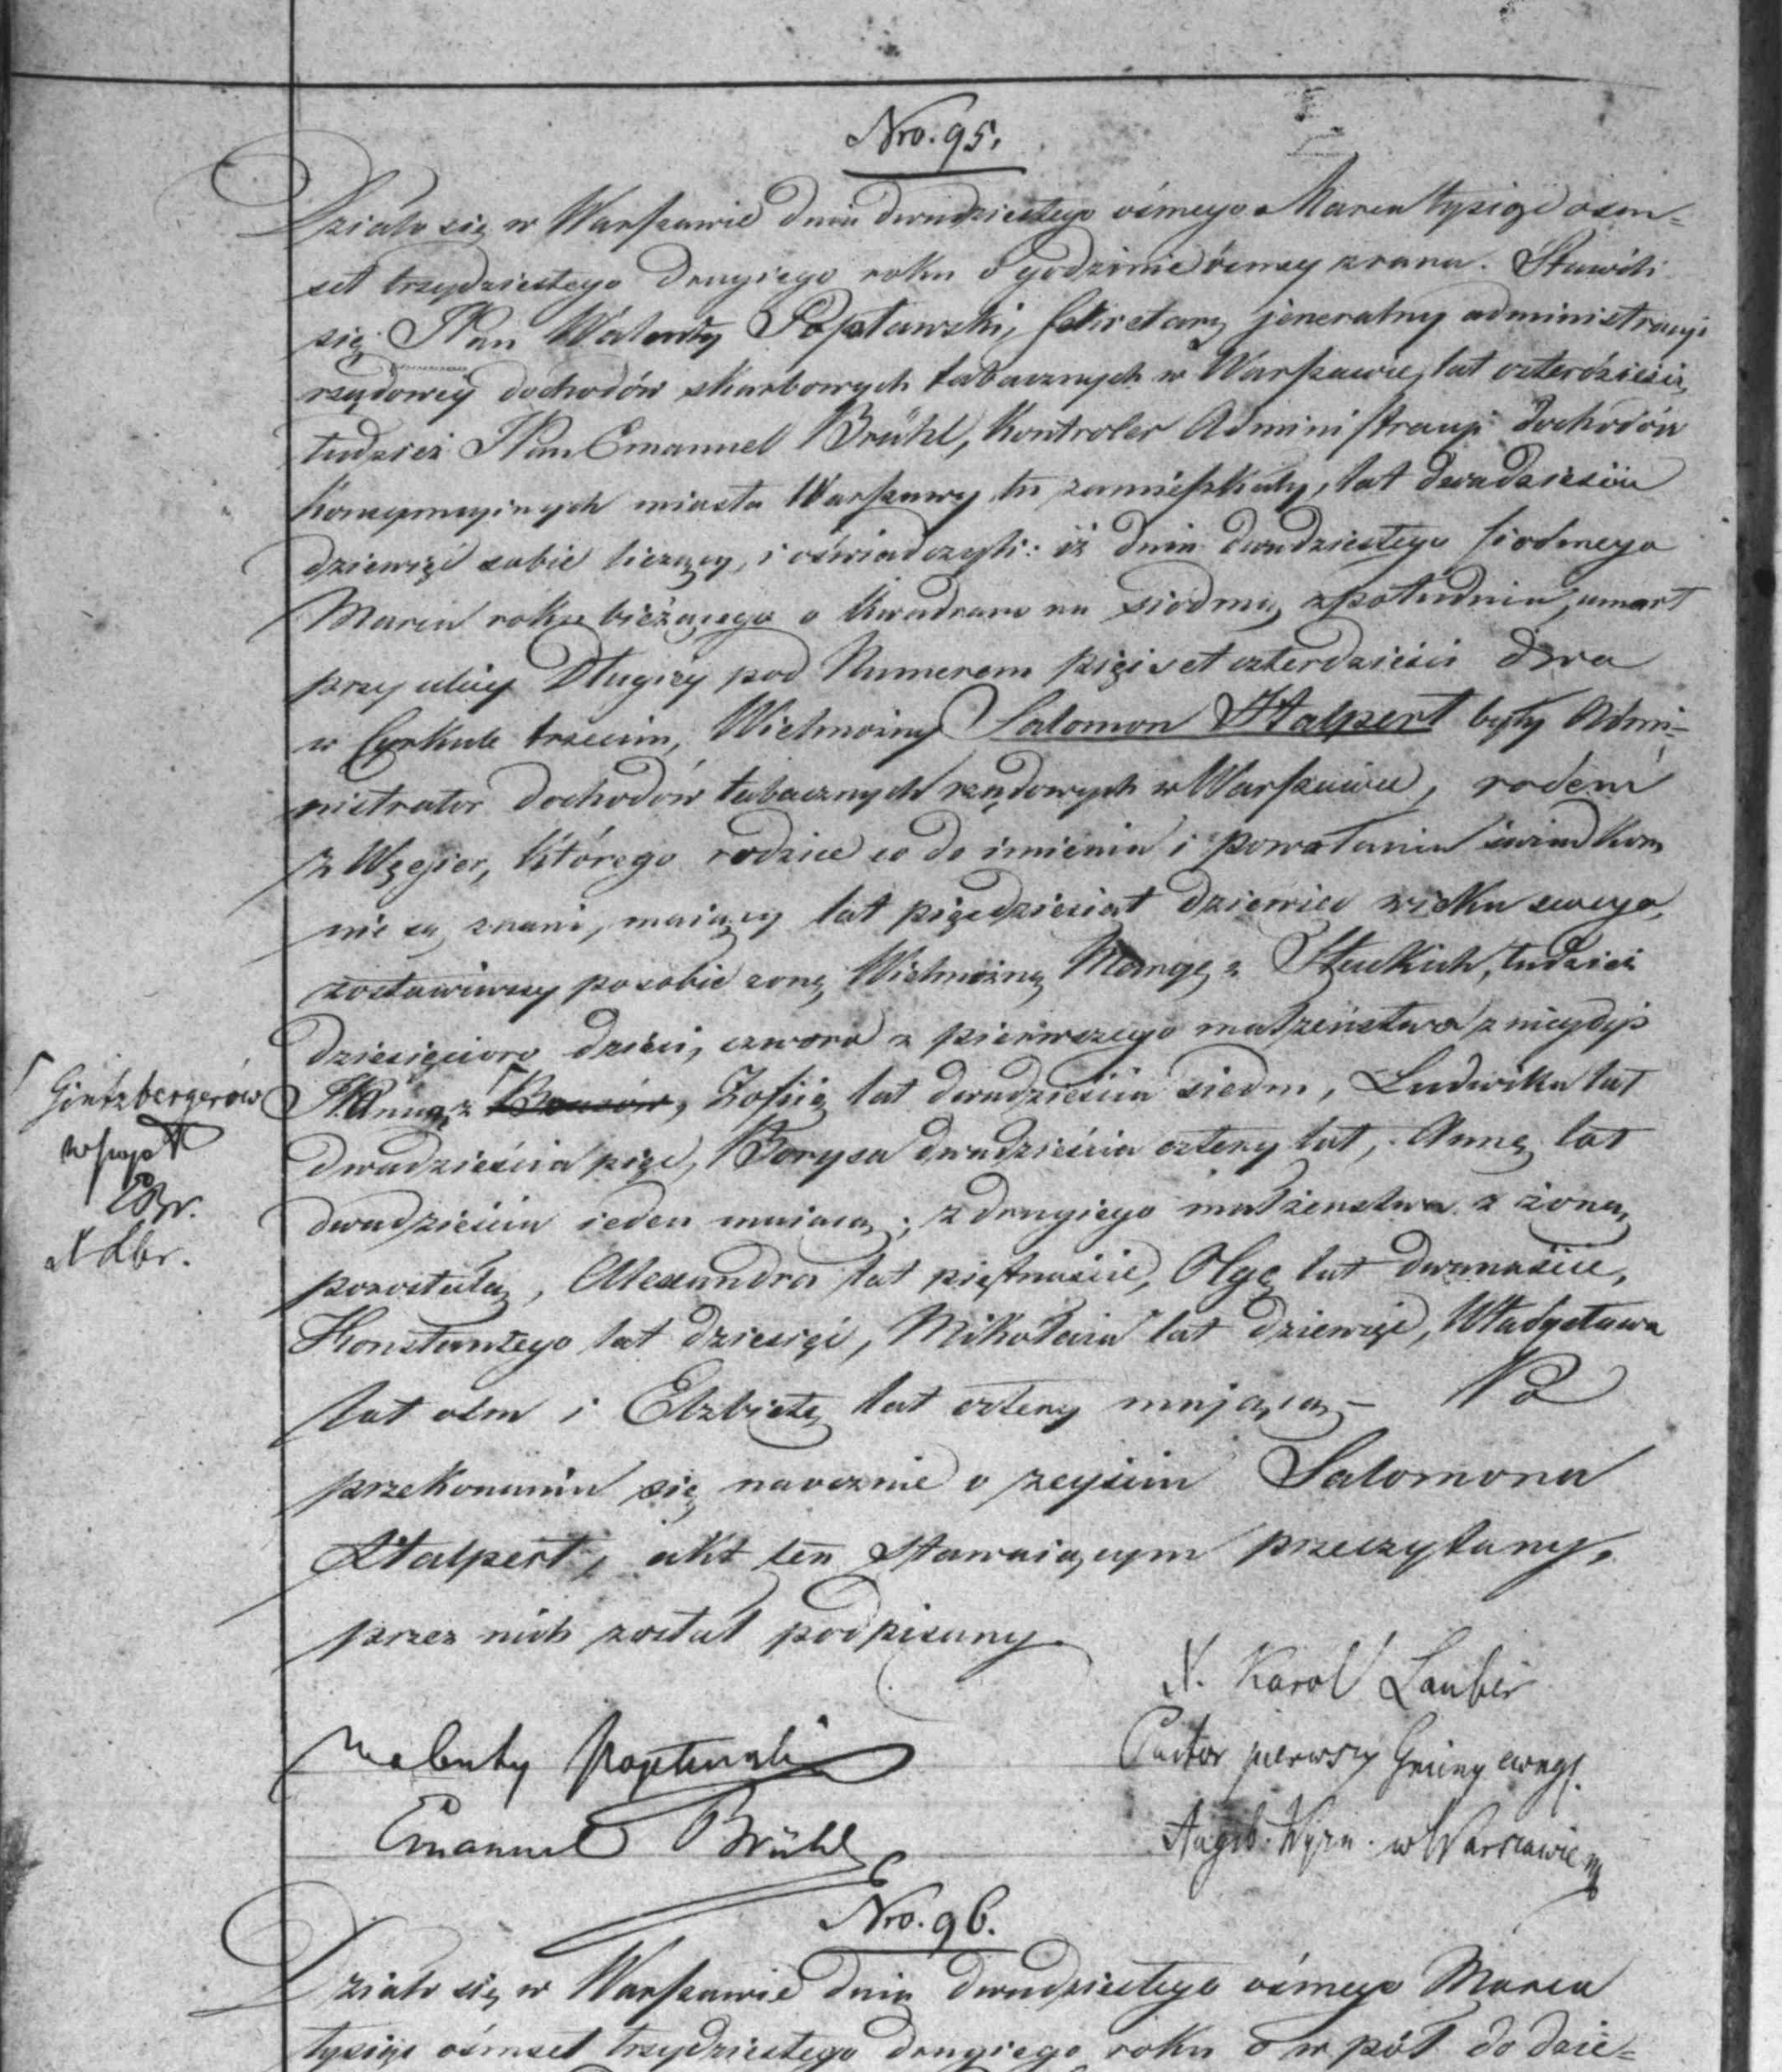 Nro. 95.
Działo się w Warszawie dnia dwudziestego ósmego Marca tysiąc ośm-
set trzydziestego drugiego roku o godzinie ósmey zrana. Stawili
się JPan Walenty Popławski, sekretarz jeneralny administracyi
rządowey dochodów skarbowych tabacznych w Warszawie, lat czterdzieści,
tudzież JPan Emanuel Brühl, Kontroler Administracyi dochodów
konsumcyinych miasta Warszawy, tu zamieszkały, lat dwadzieścia
dziewięć sobie liczący, i oświadczyli: iż dnia dwudziestego siodmego
Marca roku bieżącego o kwadrans na siodmą z południa, umarł
przy ulicy Długiey pod Numerem pięćset czterdzieści dwa
w Cyrkule trzecim, Wielmożny Salomon Halpert były Admi-
nistrator dochodów tabacznych rządowych w Warszawie, rodem
z Węgier, którego rodzice co do imienia i powołania świadkom
nie są znani, maiący lat pięcdziesiąt dziewięć wieku swego,
zostawiwszy po sobie żonę Wielmożną Maryę z Słuckich, tudzież
dziesięcioro dzieci, czworo z pierwszego małżeństwa z niegdyś
JPanną z Zofię lat dwadzieścia siedm, Ludwika lat
dwadzieścia pięć, Borysa dwadzieścia cztery lat, Annę lat
dwadzieścia ieden maiącą; z drugiego małżeństwa z żoną
pozostałą, Alexandra lat piętnaście, Olgę lat dwanaście,
Konstantego lat dziesięć, Mikołaia lat dziewięć, Władysława
lat ośm i Elżbietę lat cztery mającą - Po
przekonaniu się naocznie o zeyściu Salomona
Halpert, akt ten stawaiącym przeczytany,
przez nich został podpisany.
Gintzbergerów
EBr.
X Lbr.
X. Karol Lauber
Pastor pierwszy Gminy ewag.
Augsb. Wyzn. w Warszawie
Walenty Popławski
Emanuel Brühl
Nro. 96.
Działo się w Warszawie dnia dwudziestego ósmego Marca
tysiąc ośmset trzydziestego drugiego roku o w pół do dzie-